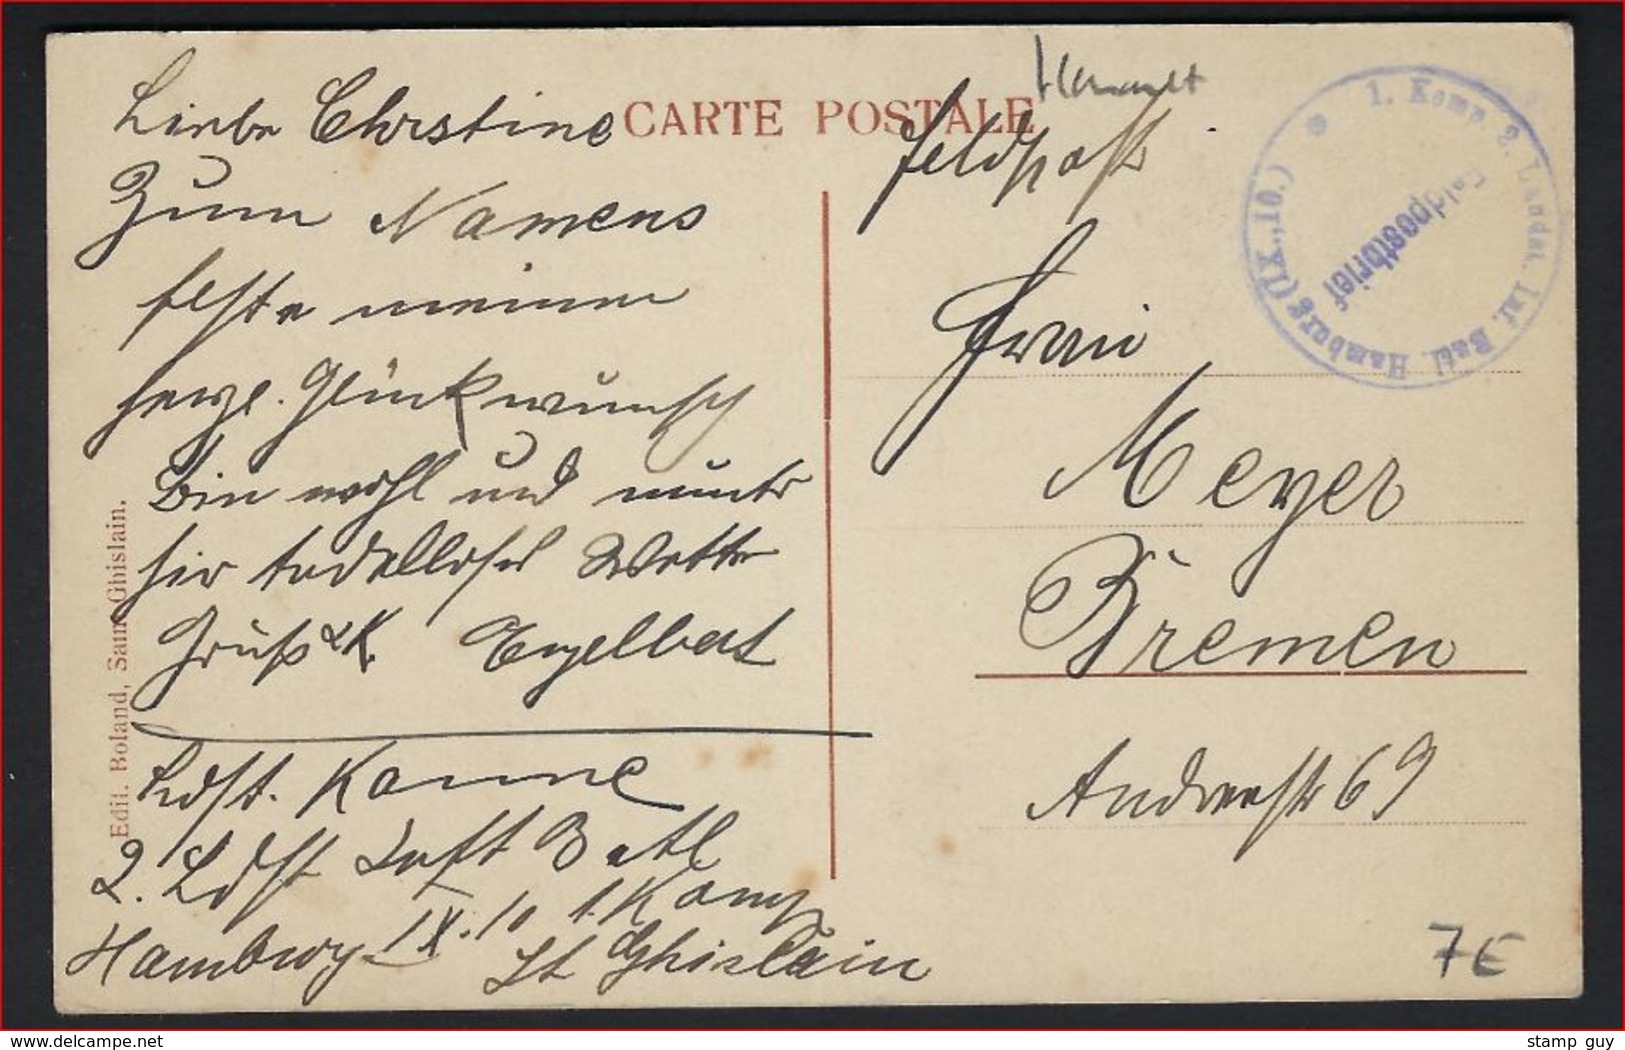 Liebe Chrstine
Zum Namens
feste meinen
herzl. Glückwunsch
Bin wohl und munter
hier tadelloses Wetter
Gruß & K. Engelbert
Ldst. Kanne
2. Ldst Inft Batl
Hamburg IX.10 1. Komp
St Ghislain
Edit. Boland, Saint-Ghislain.
CARTE POSTALE
Hainault
Feldpost
Frau
Meyer
Bremen
Andreestr 69
1. Komp. 2. Landst. Inf. Batl. Hamburg (IX., 10.)
Feldpostbrief
7€
delcampe.net
stamp guy